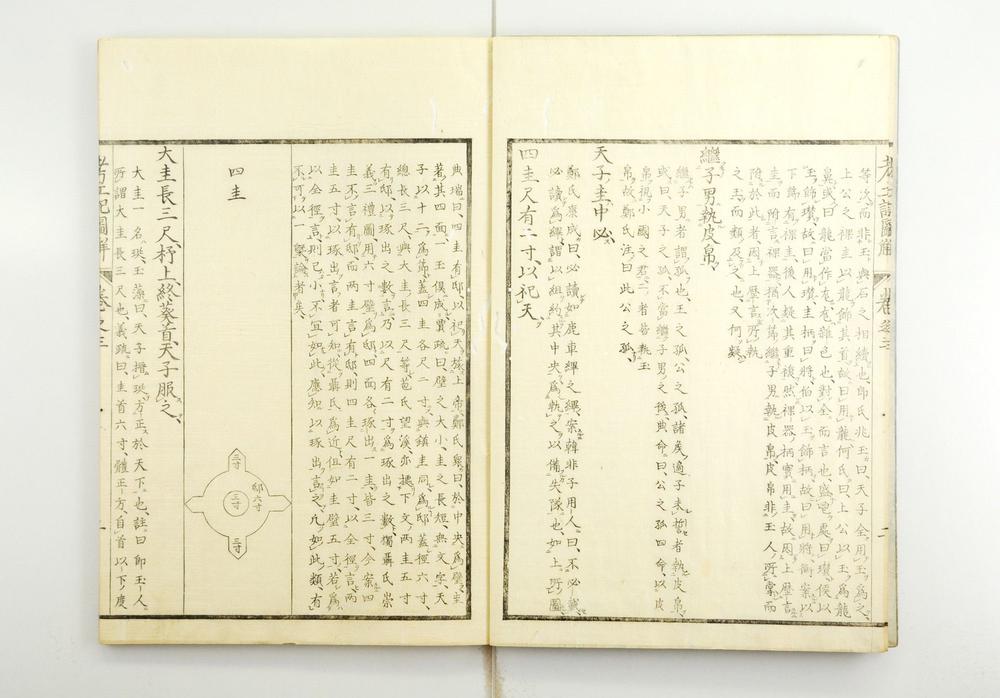 等次而非玉與石之相續也鄭氏兆玉曰天子全用玉爲之
上公之祼圭以龍飾其首故曰用龍何氏曰上公以玉爲龍
鼻或曰龍當作尨尨雜色也對全而言也盛鬯處曰瓚侯以
玉飾瓚故曰用瓚圭柄曰將伯以玉飾柄故曰用將衡案以
下篇有祼圭後人疑其重複然祼器柄實用圭故因上歷言
圭而附言祼器猶次篇繼子男執皮帛皮帛非玉人所掌而
附於此者因上歷言所執
之玉而類及之也又何疑
繼子男執皮帛
繼子男者謂孤也王之孤公之孤諸矦適子未誓者執皮帛
或曰天子之孤不當繼子男之後典命曰公之孤四命以皮
帛視小國之君二者皆執玉
帛故鄭氏注曰此公之孤
天子圭中必
鄭氏康成曰必讀如鹿車縪之縪案韓非子用人曰不必
讀爲縪謂以組約其中央爲執之以備失隊也如上所圖
四圭尺有二寸以祀天
典瑞曰四圭有邸以祀天旅上帝鄭氏衆曰於中央爲璧圭
著其四面一玉俱成賈疏曰璧之大小圭之長短無文字天
子以十二爲節蓋四圭各尺二寸與鎮圭同爲邸蓋徑六寸
總長三尺與大圭長三尺等苞氏望溪亦據下文兩圭五寸
有邸以琢出之數言乃以尺有二寸爲琢出之數獨聶氏崇
義三禮圖用六寸璧爲邸四面各琢出一圭皆三寸今案四
圭不言有邸而兩圭言有邸則四圭尺有二寸以全徑言兩
圭五寸以琢出言者可知從聶氏爲近但如圭璧五寸若爲
以全徑言則已小不宜如此應知以琢出言之凡如此類有
不可以一槩論者矣
四圭
三寸
邸六寸
三寸
三寸
大圭長三尺杼上終葵首天子服之
大圭一名珽玉藻曰天子搢珽方正於天下也註曰即玉人
所謂大圭長三尺也義疏曰圭首六寸體正方自首以下度
考工記圖解 卷之三